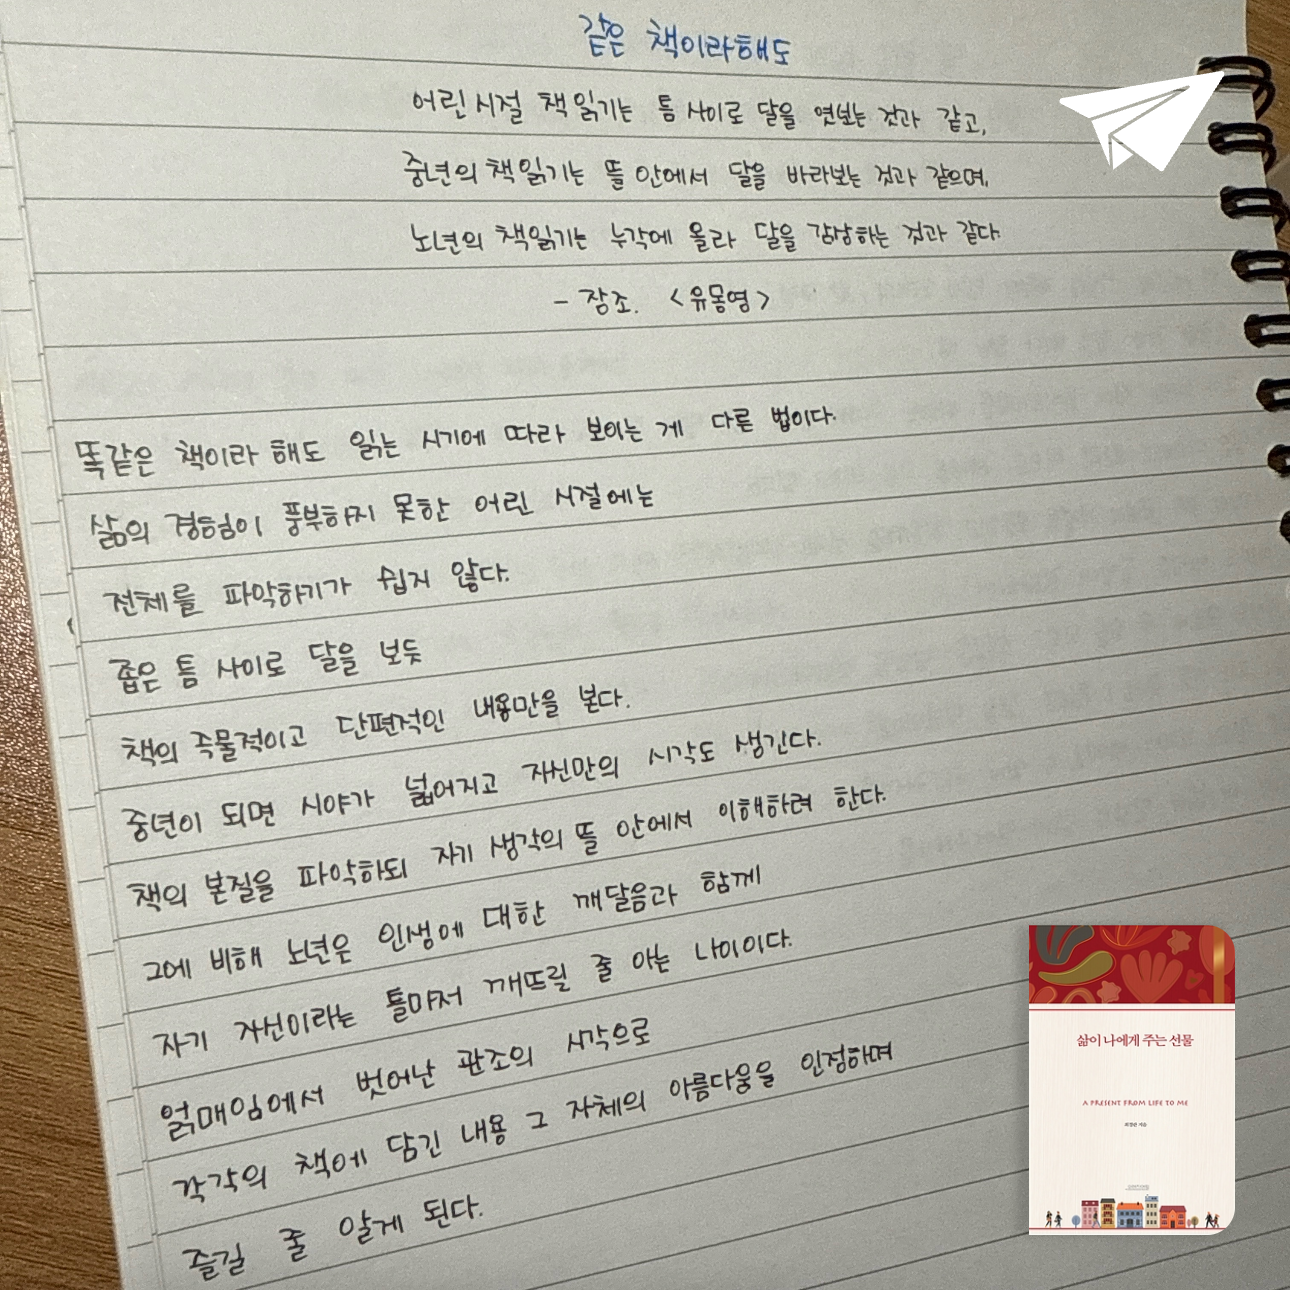 같은 책이라해도
어린시절 책읽기는 틈 사이로 달을 엿보는 것과 같고,
중년의 책읽기는 뜰 안에서 달을 바라보는 것과 같으며,
노년의 책읽기는 누각에 올라 달을 감상하는 것과 같다.
- 장조. <유몽영>
똑같은 책이라 해도 읽는 시기에 따라 보이는 게 다른 법이다.
삶의 경험이 풍부하지 못한 어린 시절에는
전체를 파악하기가 쉽지 않다.
좁은 틈 사이로 달을 보듯
책의 즉물적이고 단편적인 내용만을 본다.
중년이 되면 시야가 넓어지고 자신만의 시각도 생긴다.
책의 본질을 파악하되 자기 생각의 뜰 안에서 이해하려 한다.
그에 비해 노년은 인생에 대한 깨달음과 함께
자기 자신이라는 틀마저 깨뜨릴 줄 아는 나이이다.
얽매임에서 벗어난 관조의 시각으로
각각의 책에 담긴 내용 그 자체의 아름다움을 인정하며
즐길 줄 알게 된다.
삶이 나에게 주는 선물
A PRESENT FROM LIFE TO ME